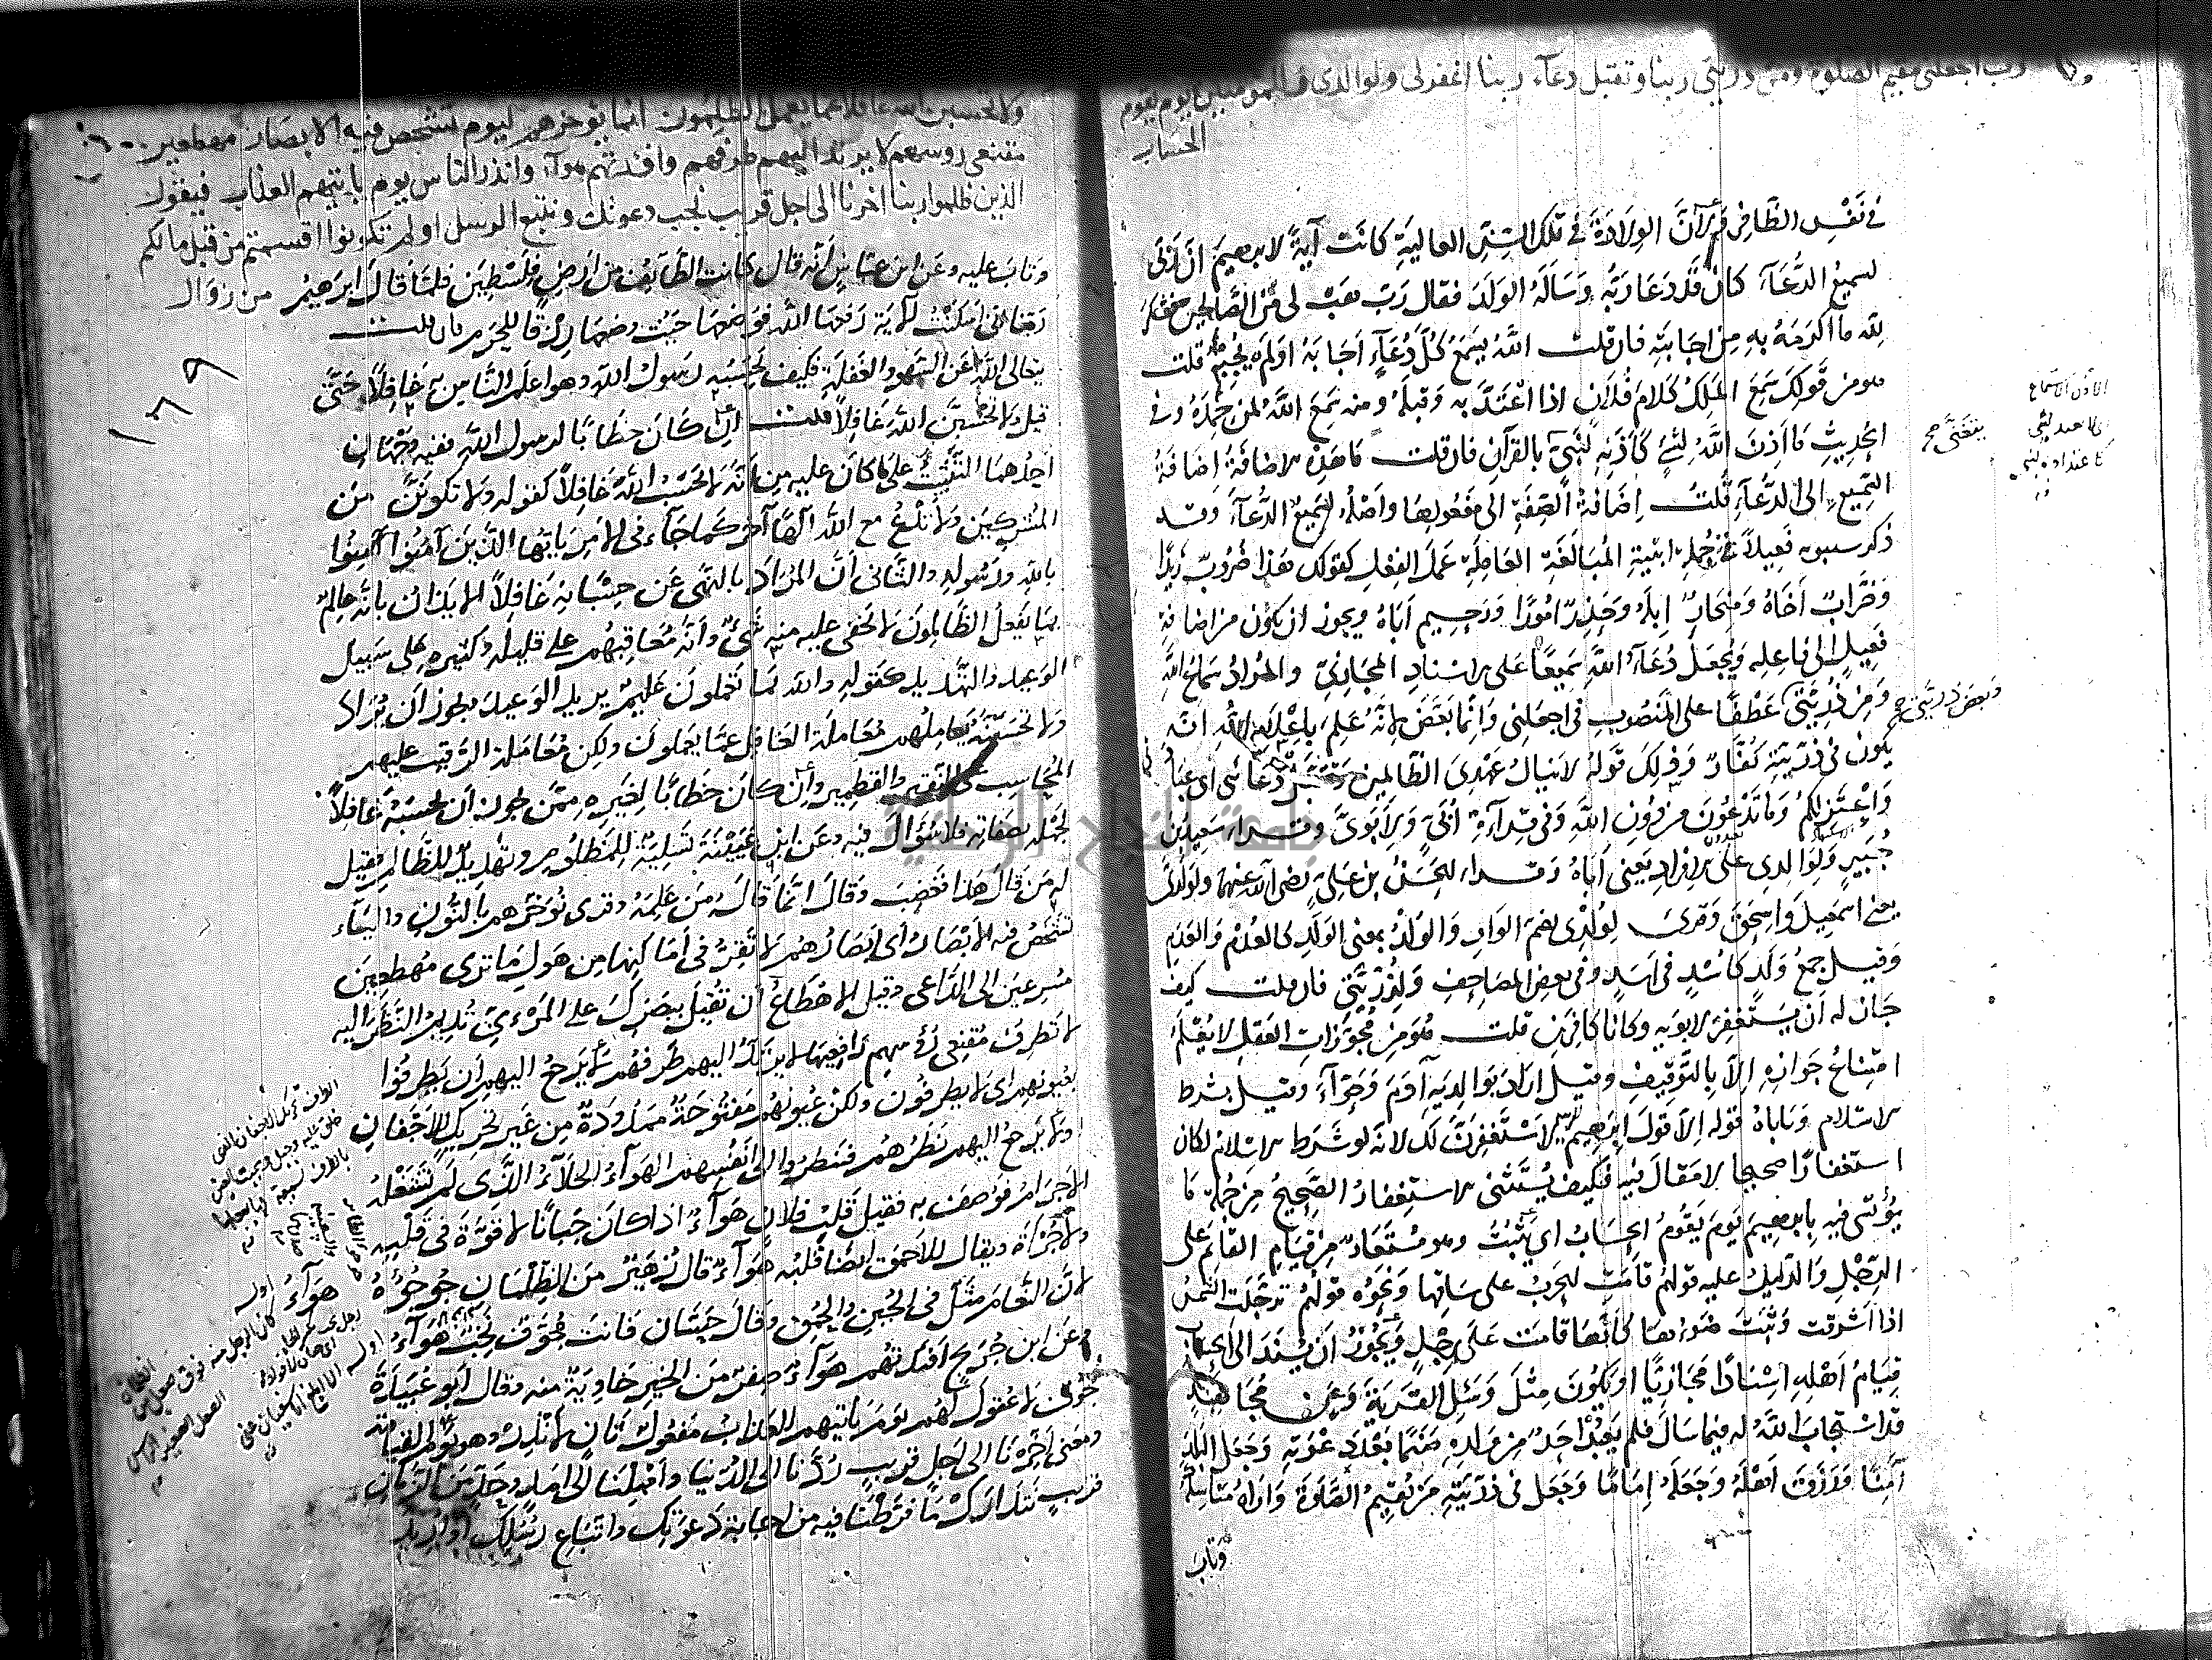 رب اجعلني مقيم الصلوة ومن ذريتي ربنا وتقبل دعاء ربنا اغفر لي ولوالدي وللمومنين يوم يقوم
الحساب
في نفس الظافر ولان الولادة في تلك السن العالية كانت آية لابرهيم ان ربي
لسميع الدعاء كان قد دعا ربه وساله الولد فقال رب هب لي من الصالحين فشكر
لله ما اكرمه به من اجابته فان قلت الله يسمع كل دعاء اجابه اولم يجبه قلت
هو من قولك سمع الملك كلام فلان اذا اعتد به وقبله ومنه سمع الله لمن حمده وفي
الحديث ما اذن الله لشئ كاذنه لنبي بالقرآن فان قلت ما هذه الاضافة اضافة
السميع الى الدعاء قلت اضافة الصفة الى مفعولها واصله لسميع الدعاء وقد
ذكر سيبويه فعيلا في جملة ابنية المبالغة العاملة عمل الفعل كقولك هذا ضروب زيدا
وضراب اخاه ومنحار ابله وحذر امورا ورحيم اباه ويجوز ان يكون من اضافة
فعيل الى فاعله ويجعل دعاء الله سميعا على الاسناد المجازي والمراد سماع الله
ومن ذريتي عطفا على المنصوب في اجعلني وانما بعض لانه علم باعلام الله انه
يكون في ذريته كفار وذلك قوله لا ينال عهدي الظالمين وتقبل دعائي اي عبادتي
واعتزلكم وما تدعون من دون الله وفي قراءة ابي ولابوي وقراء سعيد بن
جبير ولوالدي على الافراد يعني اباه وقراء الحسن بن علي رضي الله عنهما ولولدي
يعني اسمعيل واسحق وقرئ لولدي بضم الواو والولد بمعنى الولد كالعدم والعدم
وقيل جمع ولد كاسد في اسد وفي بعض المصاحف ولذريتي فان قلت كيف
جاز له ان يستغفر لابويه وكانا كافرين قلت هو من مجوزات العقل لا يعلم
امتناع جوازه الا بالتوقيف وقيل اراد بوالديه آدم وحواء وقيل بشرط
الاسلام وياباه قوله الا قول ابرهيم لابيه لاستغفرن لك لانه لو شرط الاسلام لكان
استغفارا صحيحا لا مقال فيه فكيف يستثنى الاستغفار الصحيح من جملة ما
يؤتسى فيه بابرهيم يوم يقوم الحساب اي يثبت وهو مستعار من قيام القائم على
الرجل والدليل عليه قولهم قامت الحرب على ساقها ونحوه قولهم ترجلت الشمس
اذا اشرقت وثبت ضوءها كانها قامت على رجل ويجوز ان يسند الى الحساب
قيام اهله اسنادا مجازيا او يكون مثل وسئل القرية وعن مجاهد
قد استجاب الله له فيما سال فلم يعبد احد من ولده صنما بعد دعوته وجعل البلد
آمنا ورزق اهله وجعله اماما وجعل في ذريته من يقيم الصلوة واراه مناسكه
وتاب
وبعض ذريتي صح
ولا تحسبن الله غافلا عما يعمل الظلمون انما نوخرهم ليوم تشخص فيه الابصار مهطعين
مقنعي روسهم لا يرتد اليهم طرفهم وافئدتهم هواء وانذر الناس يوم ياتيهم العذاب فيقول
الذين ظلموا ربنا اخرنا الى اجل قريب نجب دعوتك ونتبع الرسل اولم تكونوا اقسمتم من قبل ما لكم
من زوال
وتاب عليه وعن ابن عباس انه قال كانت الطايف من ارض فلسطين فلما قال ابرهيم
ربنا اني اسكنت الآية رفعها الله فوضعها حيث وضعها رزقا للحرم فان قلت
يتعالى الله عن السهو والغفلة فكيف يحسبه رسول الله وهو اعلم الناس به غافلا حتى
قيل ولا تحسبن الله غافلا قلت ان كان خطابا لرسول الله ففيه وجهان
احدهما التثبيت على ما كان عليه من انه لا يحسب الله غافلا كقوله ولا تكونن من
المشركين ولا تدع مع الله الها آخر كما جاء في الامر يا يها الذين آمنوا آمنوا
بالله ورسوله والثاني ان المراد بالنهي عن حسبانه غافلا الايذان بانه عالم
بما يفعل الظالمون لا يخفى عليه منه شئ وانه معاقبهم على قليله وكثيره على سبيل
الوعيد والتهديد كقوله والله بما تعملون عليم يريد الوعيد ويجوز ان يراد
ولا تحسبنه يعاملهم معاملة الغافل عما يعملون ولكن معاملة الرقيب عليهم
المحاسب على النقير والقطمير وان كان خطابا لغيره ممن يجوز ان يحسبه غافلا
لجهله بصفاته فلا سؤال فيه وعن ابن عيينة تسلية للمظلوم وتهديد للظالم فقيل
له من قال هذا فغضب وقال انما قاله من علمه وقرئ نؤخرهم بالنون والياء
تشخص فيه الابصار اي ابصارهم لا تقر في اماكنها من هول ما ترى مهطعين
مسرعين الى الداعي وقيل الاهطاع ان تقبل ببصرك على المرءي تديم النظر اليه
لا تطرف مقنعي رؤسهم رافعيها لا يرتد اليهم طرفهم لا يرجع اليهم ان يطرفوا
بعيونهم اي لا يطرفون ولكن عيونهم مفتوحة ممدودة من غير تحريك للاجفان
او لا يرجع اليهم نظرهم فينظروا الى انفسهم الهواء الخلاء الذي لم تشغله
الاجرام فوصف به فقيل قلب فلان هواء اذا كان جبانا لا قوة في قلبه
ولا جرأة ويقال للاحمق ايضا قلبه هواء قال زهير من الظلمان جؤجؤه هواء
لان النعام مثل في الجبن والحمق وقال حسان فانت مجوف نخب هواء
وعن ابن جريج افئدتهم هواء صفر من الخير خاوية منه وقال ابو عبيدة
جوف لا عقول لهم يوم ياتيهم العذاب مفعول ثان لانذر وهو يوم القيامة
ومعنى اخرنا الى اجل قريب ردنا الى الدنيا وامهلنا الى امد وحد من الزمان
قريب نتدارك ما فرطنا فيه من اجابة دعوتك واتباع رسلك او اريد
١٨٩
جامعة النجاح الوطنية